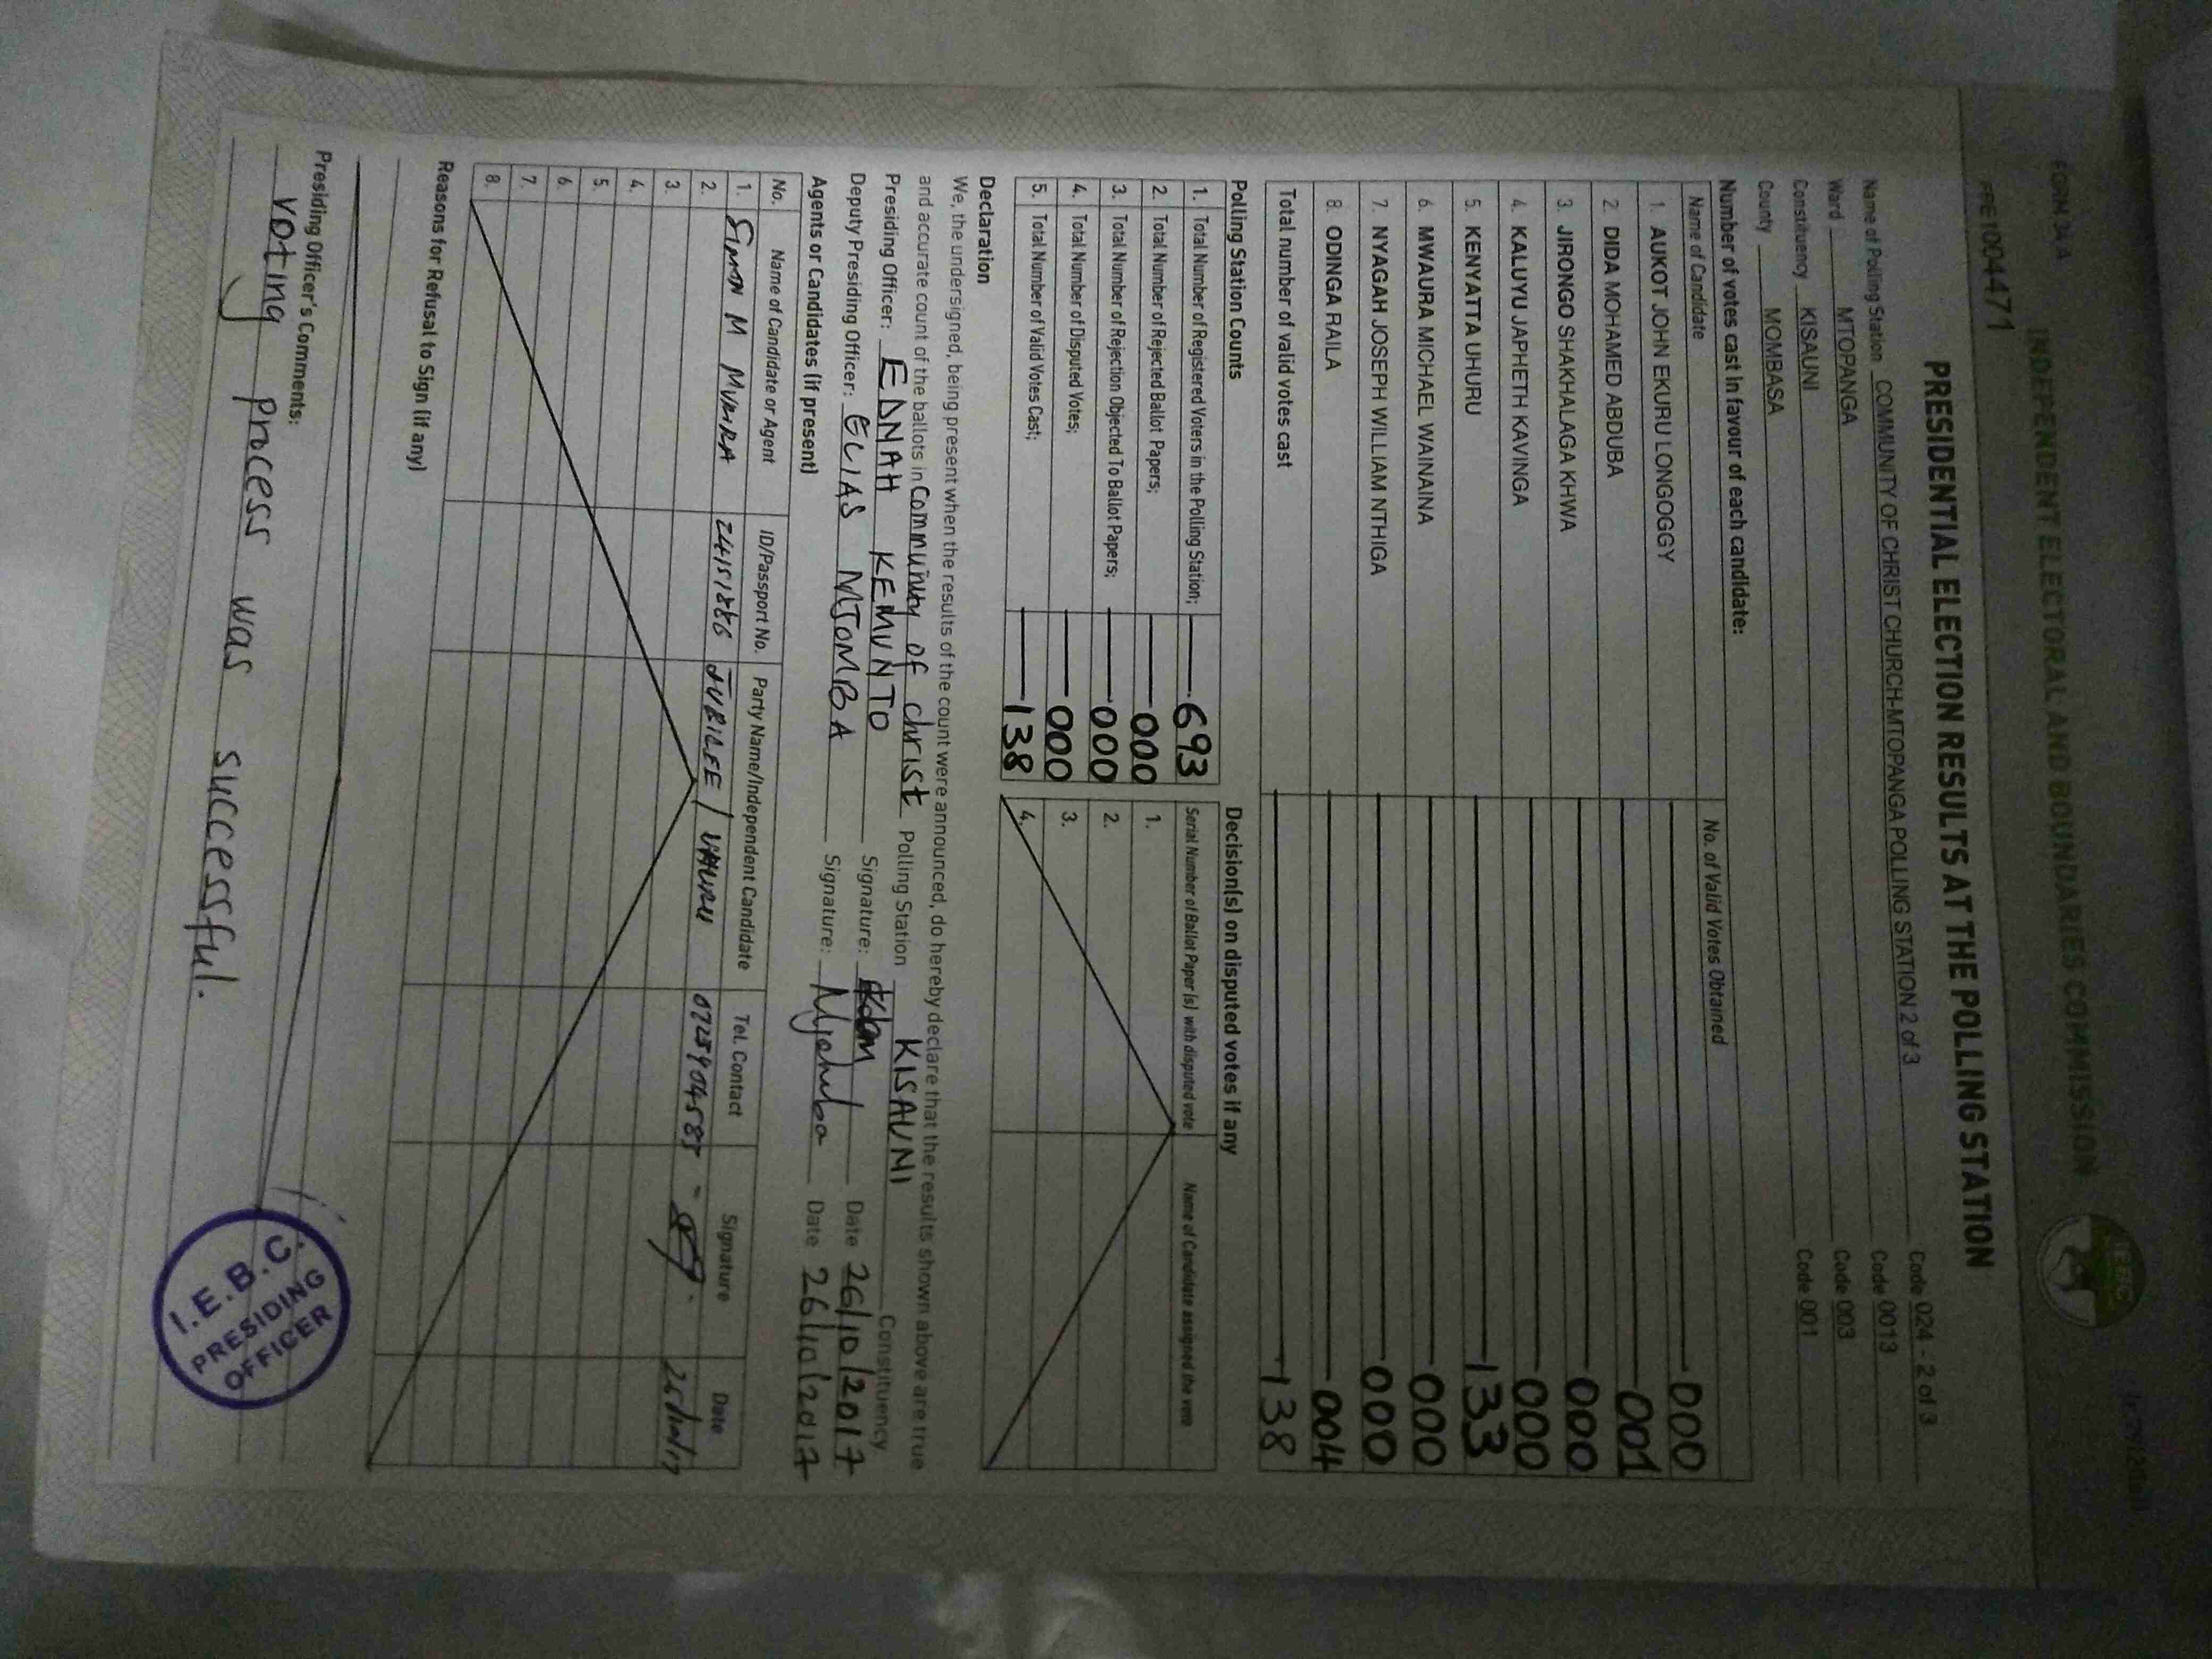 FORM 34A
INDEPENDENT ELECTORAL AND BOUNDARIES COMMISSION
IEBC
PRE1004471
PRESIDENTIAL ELECTION RESULTS AT THE POLLING STATION
Name of Polling Station COMMUNITY OF CHRIST CHURCH-MTOPANGA POLLING STATION 2 of 3 Code 024 - 2 of 3
Ward MTOPANGA Code 0013
Constituency KISAUNI Code 003
County MOMBASA Code 001
Number of votes cast in favour of each candidate:
Name of Candidate No. of Valid Votes Obtained
1. AUKOT JOHN EKURU LONGOGGY 000
2. DIDA MOHAMED ABDUBA 001
3. JIRONGO SHAKHALAGA KHWA 000
4. KALUYU JAPHETH KAVINGA 000
5. KENYATTA UHURU 133
6. MWAURA MICHAEL WAINAINA 000
7. NYAGAH JOSEPH WILLIAM NTHIGA 000
8. ODINGA RAILA 004
Total number of valid votes cast 138
Polling Station Counts
1. Total Number of Registered Voters in the Polling Station; 693
2. Total Number of Rejected Ballot Papers; 000
3. Total Number of Rejection Objected To Ballot Papers; 000
4. Total Number of Disputed Votes; 000
5. Total Number of Valid Votes Cast; 138
Decision(s) on disputed votes if any
Serial Number of Ballot Paper (s) with disputed vote Name of Candidate assigned the vote
1.
2.
3.
4.
Declaration
We, the undersigned, being present when the results of the count were announced, do hereby declare that the results shown above are true
and accurate count of the ballots in Community of christ Polling Station KISAUNI Constituency
Presiding Officer: EDNAH KEMUNTO Signature: Date 26/10/2017
Deputy Presiding Officer: ELIAS MJOMBA Signature: Mjomba Date 26/10/2017
Agents or Candidates (if present)
No. Name of Candidate or Agent ID/Passport No. Party Name/Independent Candidate Tel. Contact Signature Date
1. SIMON M 24151886 JUBILEE / UHURU 0725904585 26/10/17
2.
3.
4.
5.
6.
7.
8.
Reasons for Refusal to Sign (if any)
Presiding Officer's Comments:
voting process was successful.
I.E.B.C.
PRESIDING
OFFICER